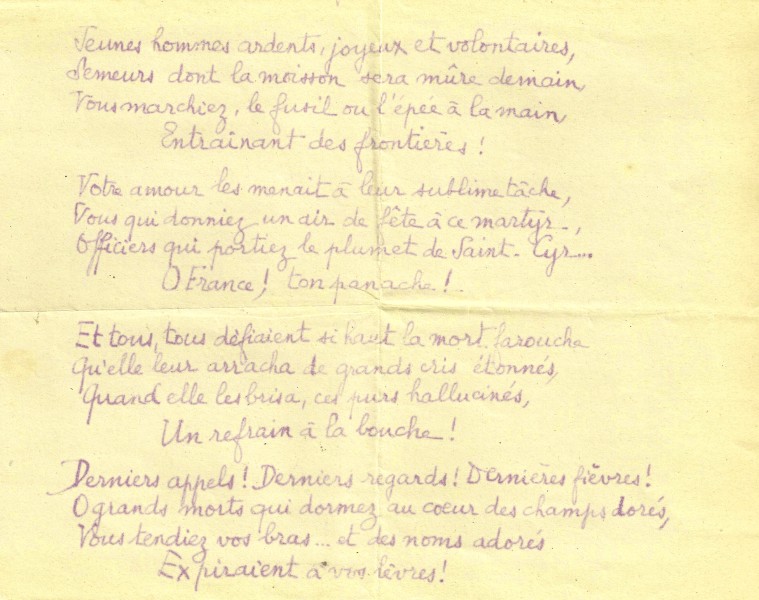 Jeunes hommes ardents, joyeux et volontaires,
Semeurs dont la moisson sera mûre demain
Vous marchiez, le fusil ou l'épée à la main
Entraînant des frontières !
Votre amour les menait à leur sublime tâche,
Vous qui donniez un air de fête à ce martyr.,
Officiers qui portiez le plumet de Saint-Cyr...
O France ! ton panache !
Et tous, tous défiaient si haut la mort farouche
Qu'elle leur arracha de grands cris étonnés,
Quand elle les brisa, ces purs hallucinés,
Un refrain à la bouche !
Derniers appels ! Derniers regards ! Dernières fièvres !
O grands morts qui dormez au coeur des champs dorés,
Vous tendiez vos bras... et des noms adorés
Expiraient à vos lèvres !